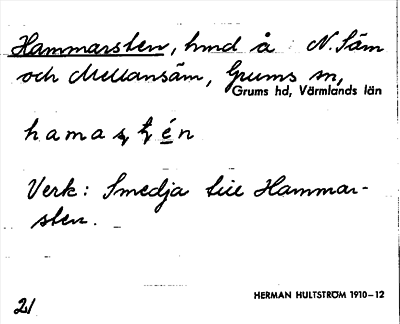 Hammarsten, hmd å N. Säm
och Mellansäm, Grums sn,
Grums hd, Värmlands län
hamaştén
Verk: Smedja till Hammar-
sten.
HERMAN HULTSTRÖM 1910–12
21